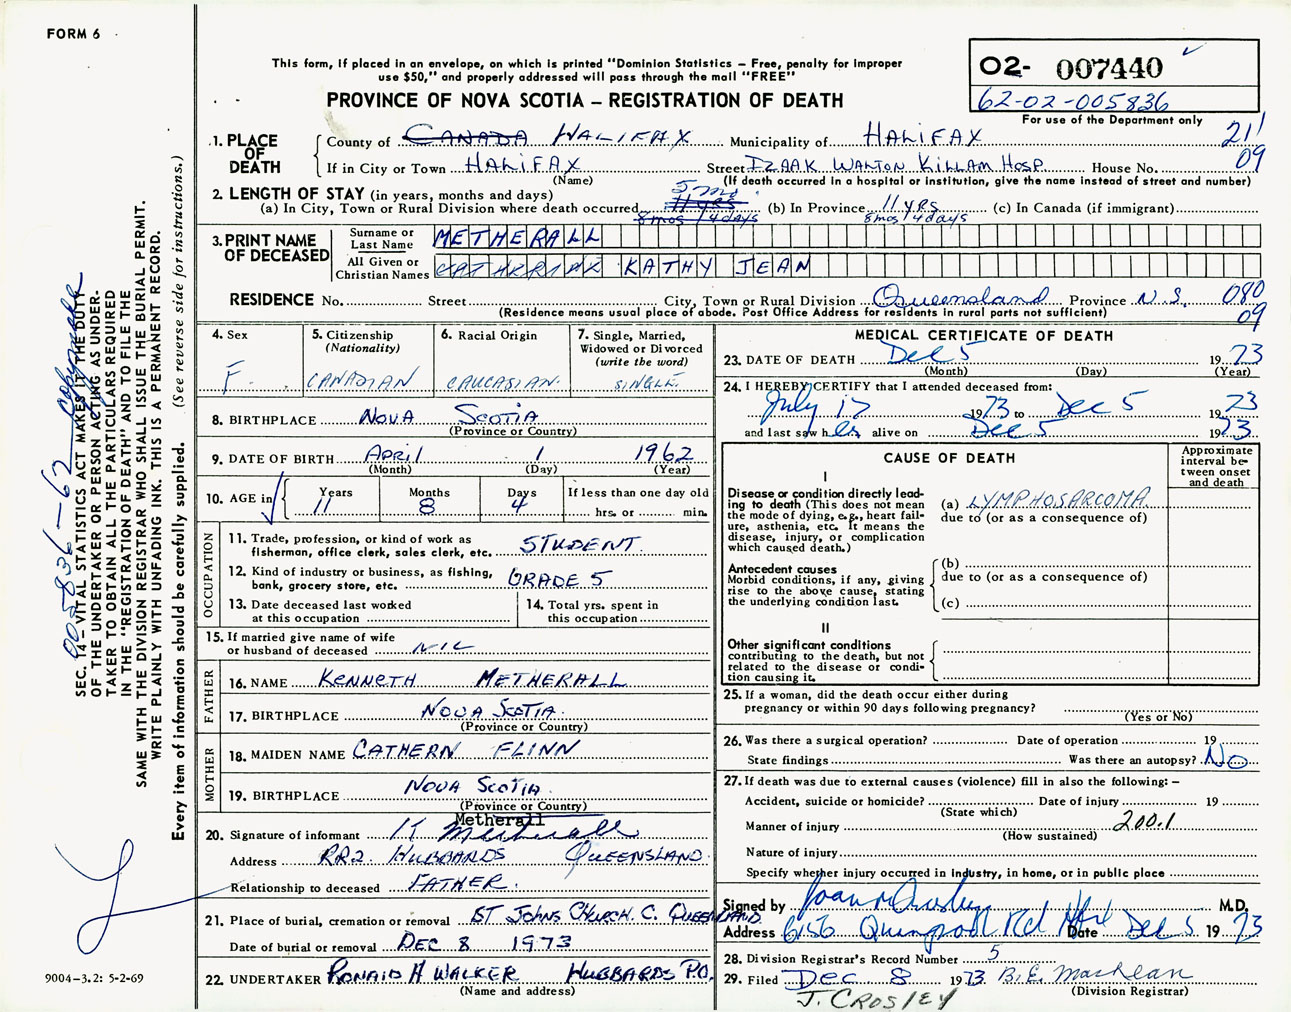 FORM 6
This form, if placed in an envelope, on which is printed "Dominion Statistics – Free, penalty for improper
use $50," and properly addressed will pass through the mail "FREE"
O2- 007440
62-02-005836
For use of the Department only
PROVINCE OF NOVA SCOTIA – REGISTRATION OF DEATH
1. PLACE OF DEATH
County of CANADA HALIFAX Municipality of HALIFAX 21
If in City or Town HALIFAX Street IZAAK WALTON KILLAM HOSP. House No. 09
(Name) (If death occurred in a hospital or institution, give the name instead of street and number)
2. LENGTH OF STAY (in years, months and days) 5 mo
(a) In City, Town or Rural Division where death occurred 11 yrs 8 mos 4 days (b) In Province 11 yrs 8 mos 4 days (c) In Canada (if immigrant)
3. PRINT NAME OF DECEASED
Surname or Last Name METHERALL
All Given or Christian Names KATHY JEAN
RESIDENCE No. Street City, Town or Rural Division Queensland Province N.S. 080
(Residence means usual place of abode. Post Office Address for residents in rural parts not sufficient) 09
4. Sex F.
5. Citizenship (Nationality) CANADIAN
6. Racial Origin CAUCASIAN
7. Single, Married, Widowed or Divorced (write the word) SINGLE
8. BIRTHPLACE NOVA SCOTIA
(Province or Country)
9. DATE OF BIRTH APRIL 1 1962
(Month) (Day) (Year)
10. AGE in Years 11 Months 8 Days 4 If less than one day old
hrs. or min.
OCCUPATION
11. Trade, profession, or kind of work as fisherman, office clerk, sales clerk, etc. STUDENT
12. Kind of industry or business, as fishing, bank, grocery store, etc. GRADE 5
13. Date deceased last worked at this occupation
14. Total yrs. spent in this occupation
15. If married give name of wife or husband of deceased NIL
FATHER
16. NAME KENNETH METHERALL
17. BIRTHPLACE NOVA SCOTIA
(Province or Country)
MOTHER
18. MAIDEN NAME CATHERN FLINN
19. BIRTHPLACE NOVA SCOTIA
(Province or Country)
Metherall
20. Signature of informant K Metherall
Address RR2 HUBBARDS QUEENSLAND
Relationship to deceased FATHER
21. Place of burial, cremation or removal ST JOHNS CHURCH. C. QUEENSLAND
Date of burial or removal DEC 8 1973
22. UNDERTAKER RONALD H WALKER HUBBARDS P.O.
(Name and address)
MEDICAL CERTIFICATE OF DEATH
23. DATE OF DEATH Dec 5 1973
(Month) (Day) (Year)
24. I HEREBY CERTIFY that I attended deceased from:
July 17 1973 to Dec 5 1973
and last saw her alive on Dec 5 1973
CAUSE OF DEATH
Approximate interval between onset and death
I
Disease or condition directly leading to death (This does not mean the mode of dying, e.g., heart failure, asthenia, etc. It means the disease, injury, or complication which caused death.)
(a) LYMPHOSARCOMA
due to (or as a consequence of)
Antecedent causes
Morbid conditions, if any, giving rise to the above cause, stating the underlying condition last.
(b)
due to (or as a consequence of)
(c)
II
Other significant conditions contributing to the death, but not related to the disease or condition causing it.
25. If a woman, did the death occur either during pregnancy or within 90 days following pregnancy?
(Yes or No)
26. Was there a surgical operation? Date of operation 19
State findings Was there an autopsy? No
27. If death was due to external causes (violence) fill in also the following: –
Accident, suicide or homicide? Date of injury 19
(State which)
Manner of injury 200.1
(How sustained)
Nature of injury
Specify whether injury occurred in industry, in home, or in public place
Signed by M.D.
Address 6156 Quinpool Rd Hfx Date Dec 5 1973
28. Division Registrar's Record Number 5
29. Filed Dec 8 1973 B.E. MacLean
(Division Registrar)
J. CROSLEY
SEC. 14 – VITAL STATISTICS ACT MAKES IT THE DUTY
OF THE UNDERTAKER OR PERSON ACTING AS UNDER-
TAKER TO OBTAIN ALL THE PARTICULARS REQUIRED
IN THE "REGISTRATION OF DEATH" AND TO FILE THE
SAME WITH THE DIVISION REGISTRAR WHO SHALL ISSUE THE BURIAL PERMIT.
WRITE PLAINLY WITH UNFADING INK. THIS IS A PERMANENT RECORD.
Every item of information should be carefully supplied. (See reverse side for instructions.)
005836-62
9004-3.2: 5-2-69